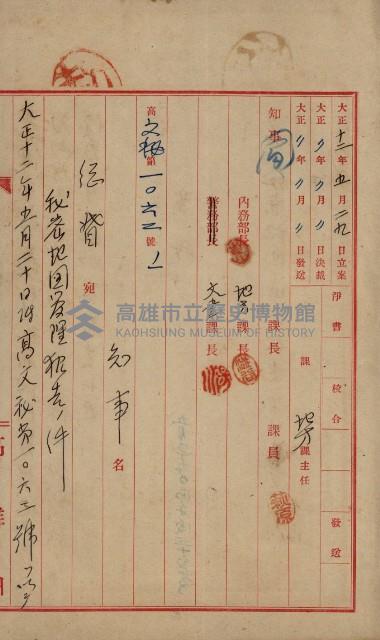 大正十二年五月二九日立案 淨書 校合 發送
大正〃年〃月〃日決裁
大正〃年〃月〃日發送 課 地方課主任
知事
內務部長 地方課長 課員
警務部長 文書課長
課長
高文秘第一〇六三號ノ1
知事名
宛
秘密地図受理報告ノ件
大正十二年五月二十日附高文秘第一〇六三號ヲ以
高雄市立歷史博物館
KAOHSIUNG MUSEUM OF HISTORY